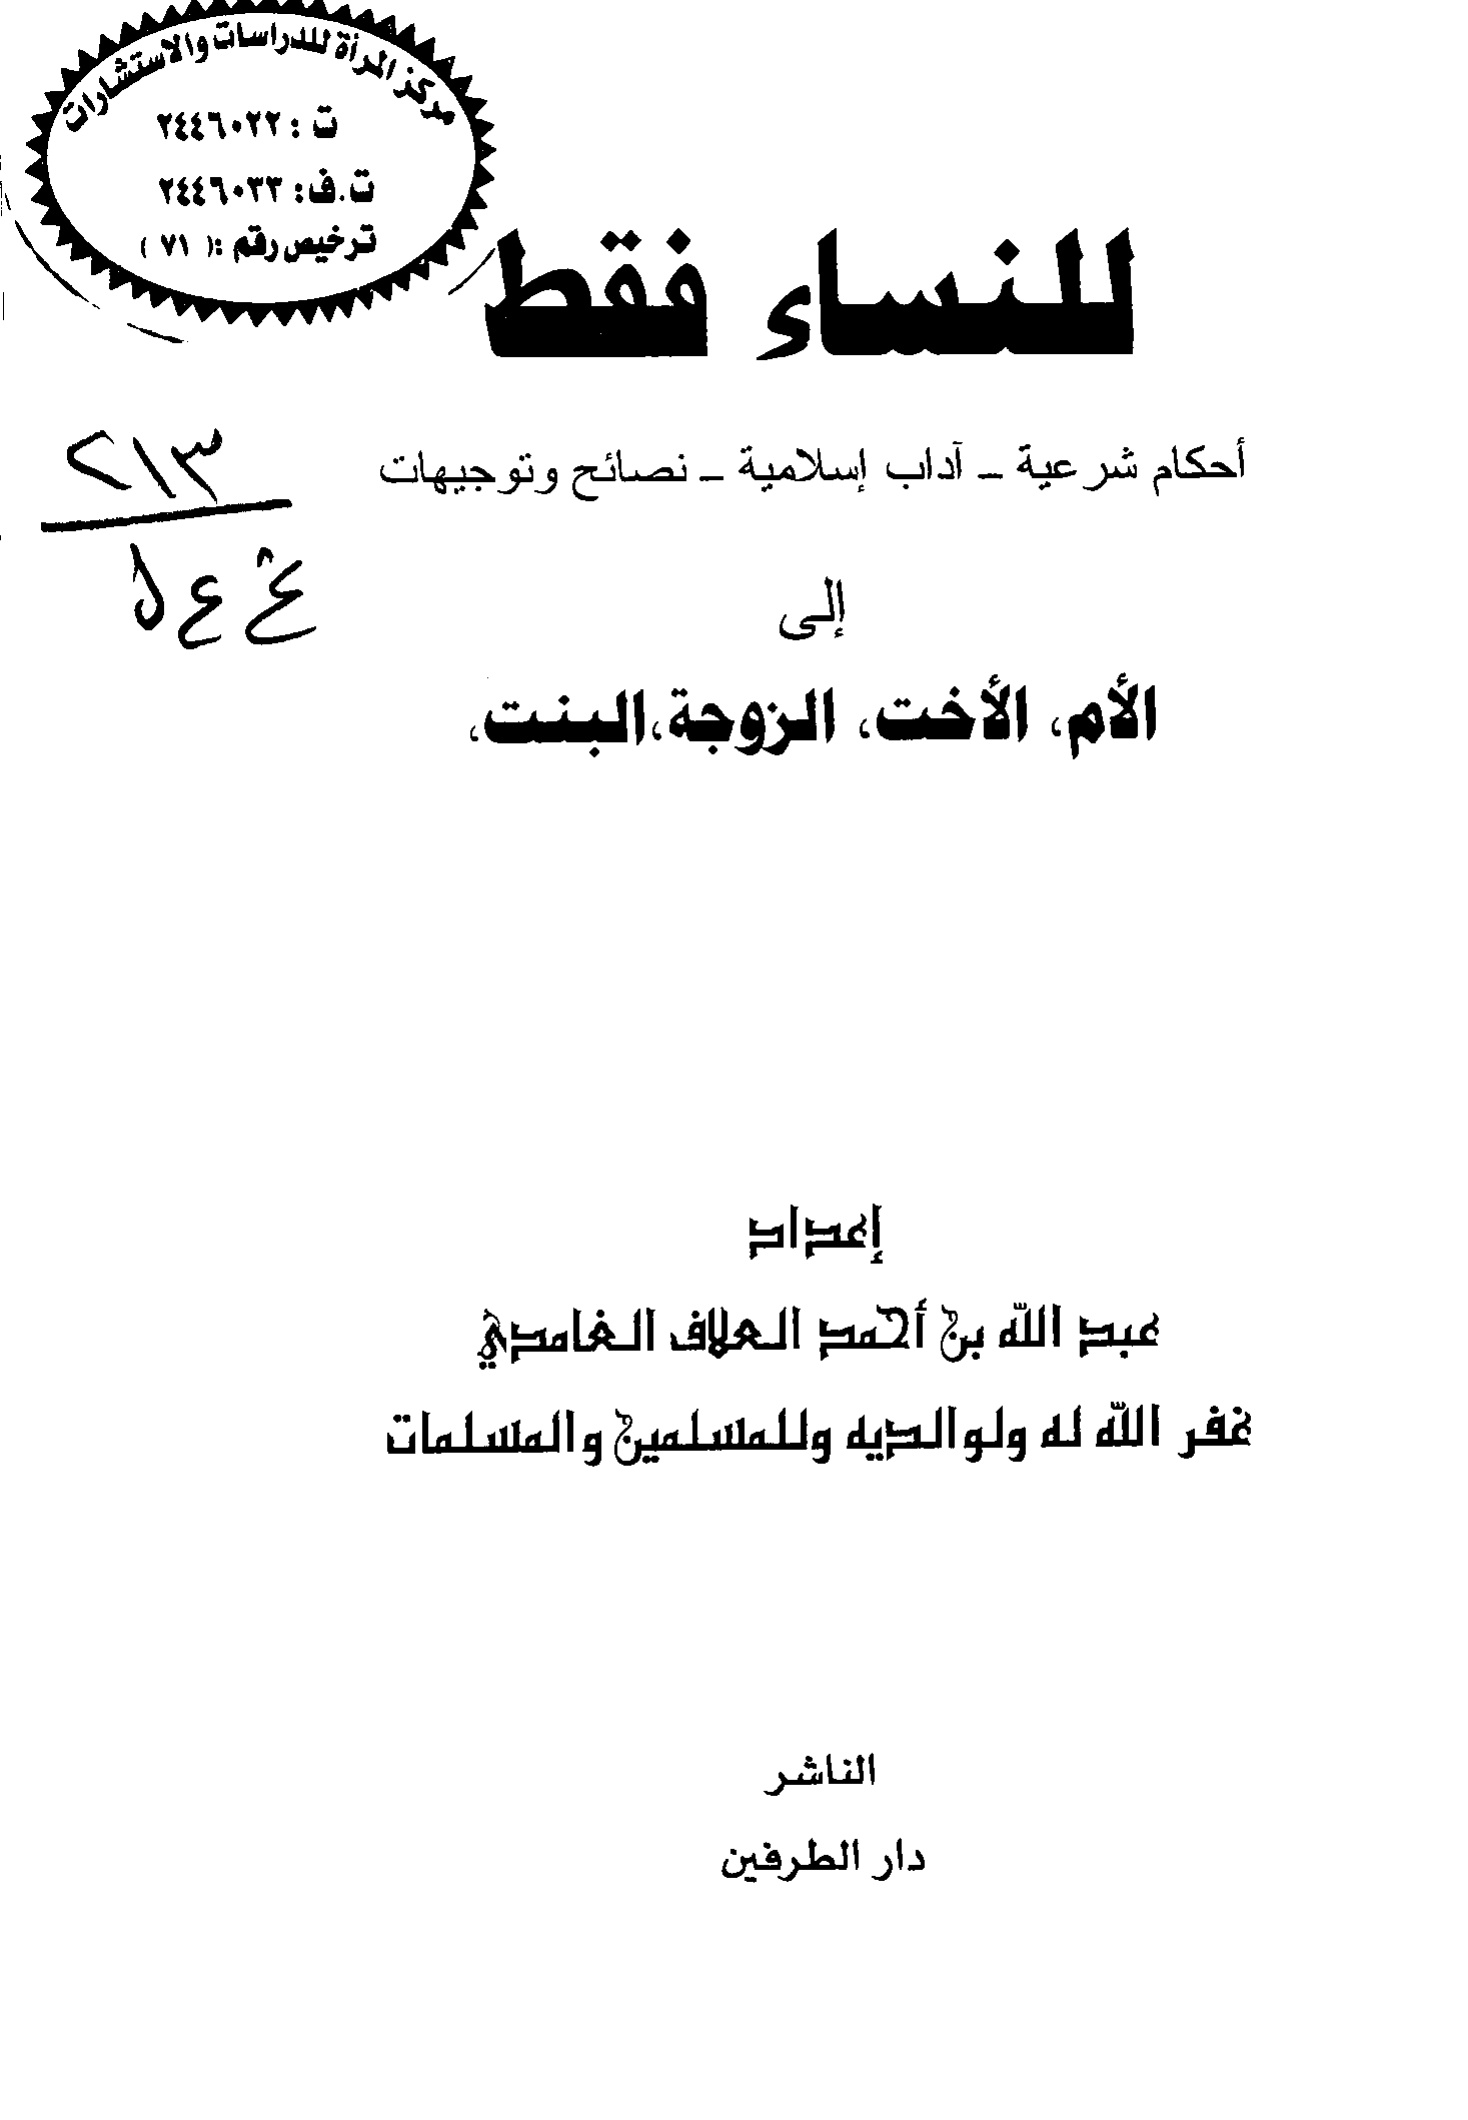 مركز المرأة للدراسات والاستشارات
ت : ٢٤٤٦٠٢٢
ت.ف: ٢٤٤٦٠٣٣
ترخيص رقم :( ٧١ )
للنساء فقط
أحكام شرعية – آداب إسلامية – نصائح وتوجيهات
٢١٣
إلى
الأم، الأخت، الزوجة،البنت،
إعداد
عبد الله بن أحمد العلاف الغامدي
غفر الله له ولوالديه وللمسلمين والمسلمات
الناشر
دار الطرفين